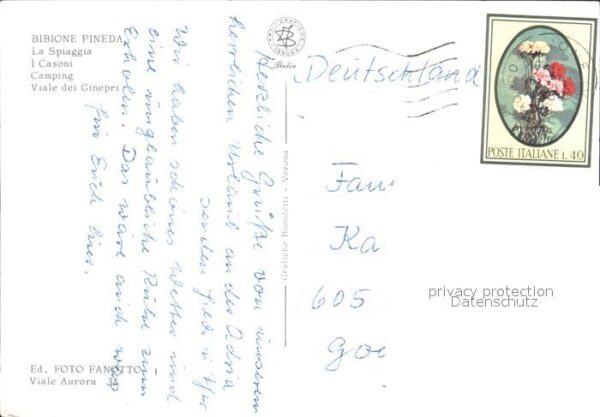 BIBIONE PINEDA
La Spiaggia
I Casoni
Camping
Viale dei Ginepri
Italia
Deutschland
POSTE ITALIANE L.40
Herzliche Grüße von unserem
herrlichen Urlaub an der Adria
senden
Wir haben schönes Wetter und
eine unglaubliche Ruhe zum
Erholen. Das wäre auch was
für Euch hier.
Grafiche Biondetti - Verona
Fam
Ka
605
Goe
privacy protection
Datenschutz
Ed. FOTO FANOTTO
Viale Aurora